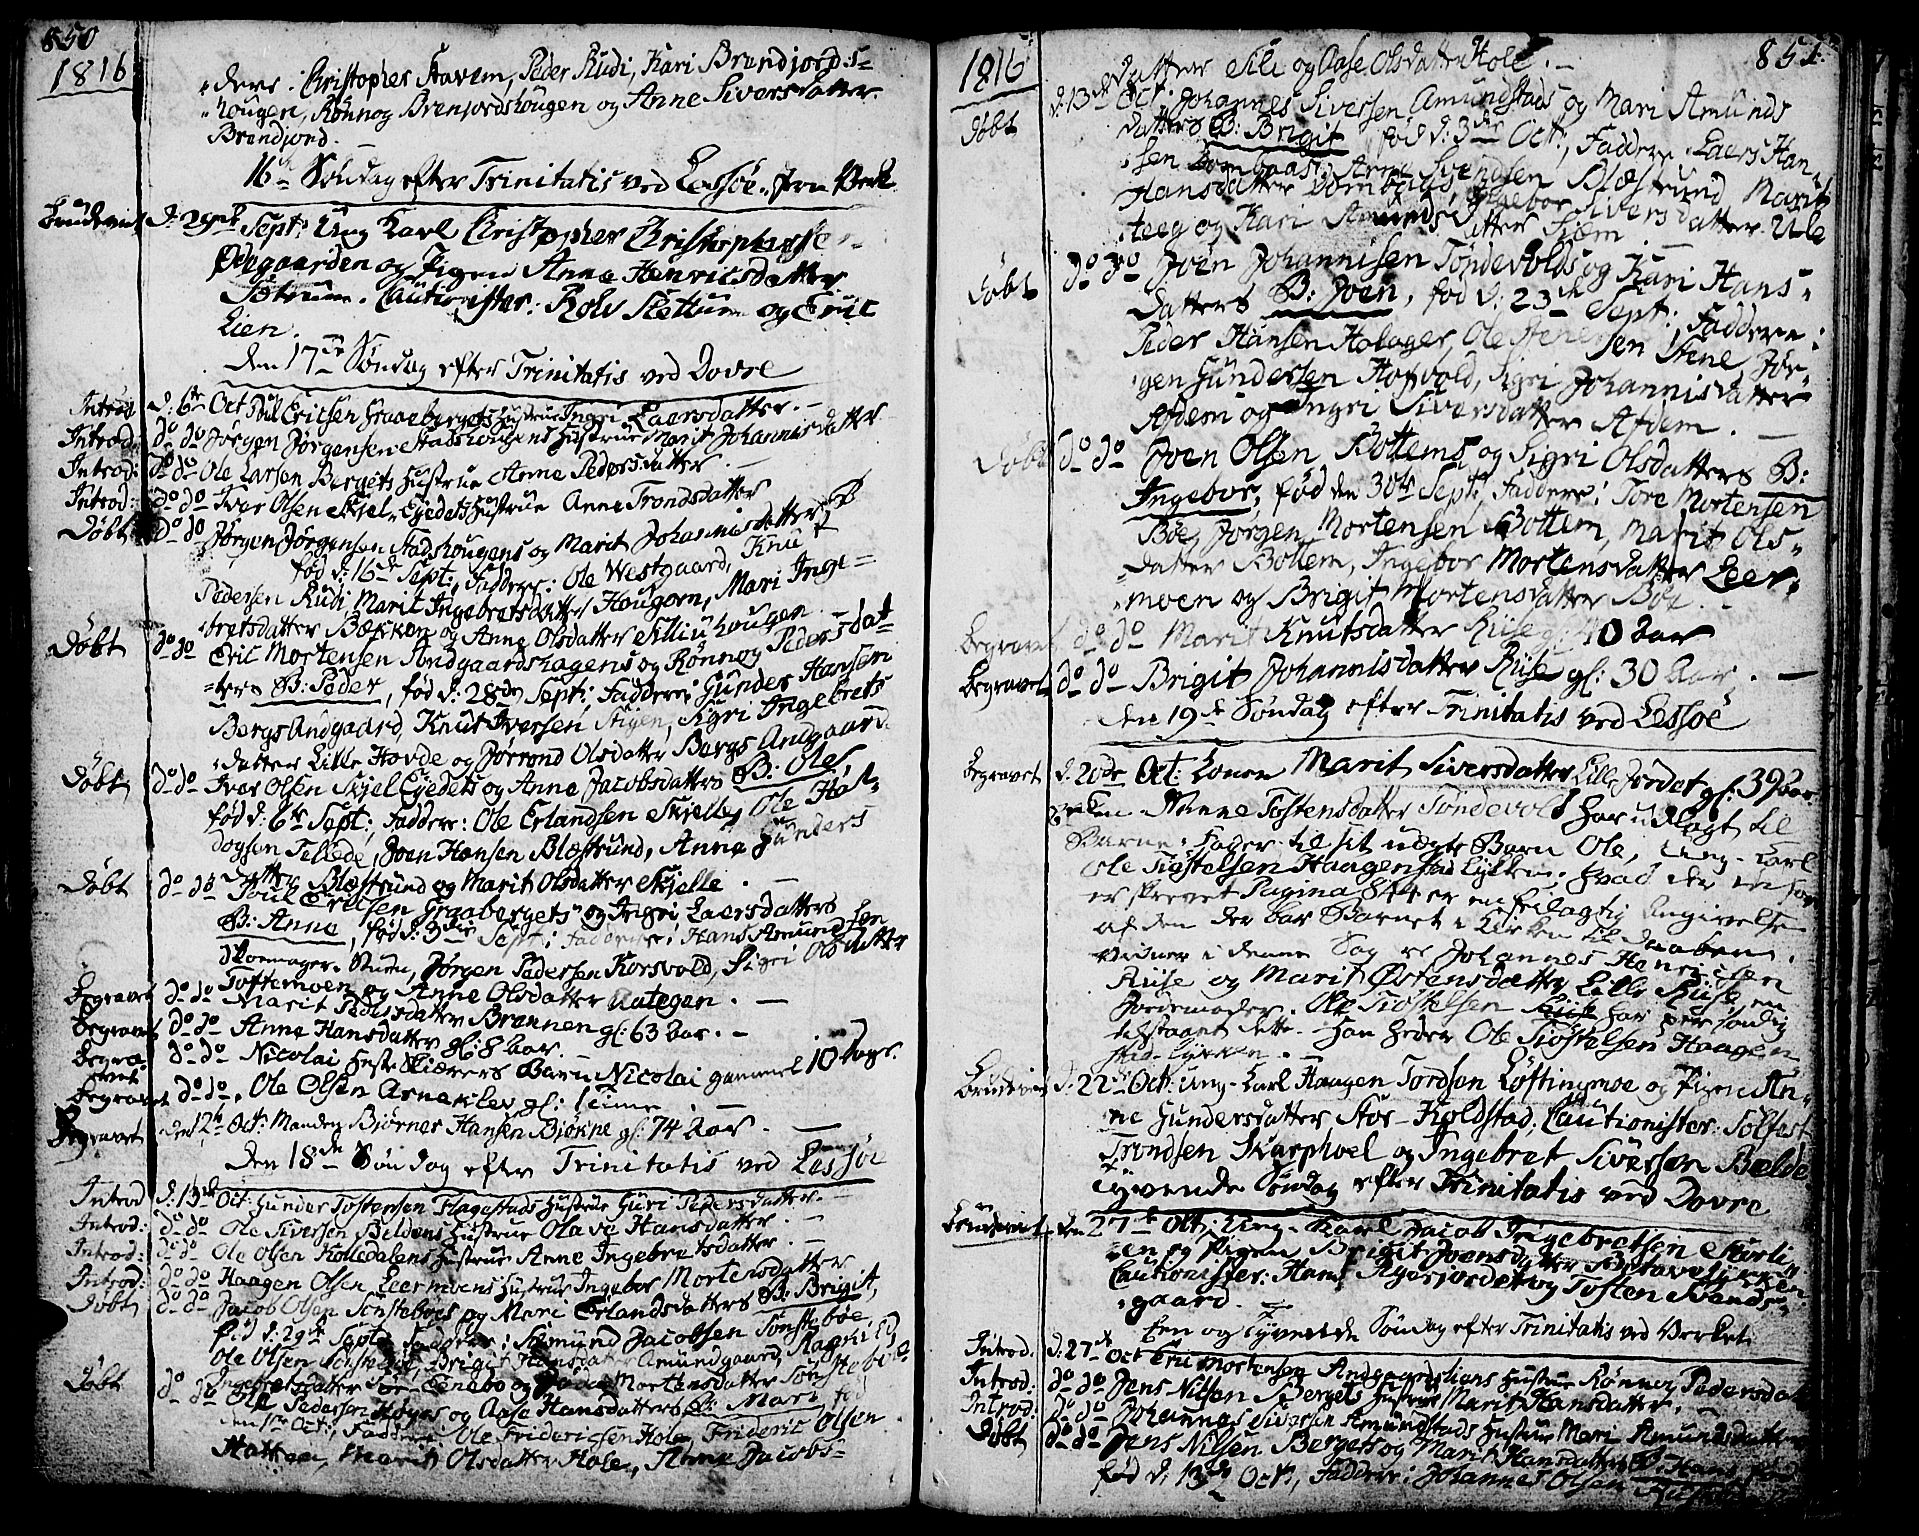 850
1816
ders: Christopher Stavem, Peder Rudi, Kari Brendjords-
hougen, Rønnog Brenjordshougen og Anne Siversdatter
Brendjord.
16de Søndag efter Trinitatis ved Lessøe
Brudeviet d: 29de Sept: Ung Karl Christopher Christophersen
Ødegaarden og Pigen Anne Henricsdatter
Sætrum. Cautionister: Rolv Slettum og Eric
Lien.
Den 17de Søndag efter Trinitatis ved Dovre
Introd d: 6te Oct Poul Ericsen Graabergets Hustrue Ingri Laersdatter. -
Introd: do do Jørgen Jørgensen Stadshougens Hustrue Marit Johannisdatter
Introd: do do Ole Larsen Bergets Hustrue Anne Pedersdatter. -
Introd: do do Iver Olsen Skjel-Eyedets Hustrue Anne Trondsdatter
Døbt do do Jørgen Jørgensen Stadshougens og Marit Johannisdatters B
fød d: 16de Sept:, Faddere: Ole Westgaard, Knut
Pedersen Rudi, Marit Ingebretsdatter Hougen, Mari Inge=
bretsdatter Bækken og Anne Olsdatter Killiuhougen
Døbt do do Eric Mortensen Andgaardshagens og Rønnog Pedersdat=
ters B: Peder, fød d: 28de Sept:, Faddere: Gunder Hansen
Bergs Andgaard, Knut Iversen Stigen, Sigri Ingebrets
datter Lille Hovde og Jørrond Olsdatter Bergs Andgaard
Døbt do do Iver Olsen Skjel Eyedets og Anne Jacobsdatters B: Ole,
fød d: 6te Sept:, Faddere: Ole Erlandsen Skjelle, Ole Hal-
dogsen Tellede, Joen Hansen Blæstrund, Anne Gunders
datter Blæstrund og Marit Olsdatter Skjelle. -
Døbt do do Poul Ericsen Graabergets og Ingri Laersdatters
B: Anne, fød d: 3die Sept:, Faddere: Hans Amundsen
Skoemager, Jørgen Pedersen Korsvold, Sigri Olsdatter
Toftemoen og Anne Olsdatter Aategen. -
Begravet do do Marit Pedersdatter Brænnen gl: 63 Aar. -
Begravet do do Anne Hansdatter gl: 8 Aar. -
Begravet do do Nicolai Heste Skiærers Barn Nicolai gammel 10 Dage.
Begravet do do, Ole Olsen Arneklev gl: 1 Time. -
Begravet den 12te Oct: Manden Bjørner Hansen Bjøkne gl: 74 Aar. -
Den 18de Søndag efter Trinitatis ved Lessjøe
Introd d: 13de Oct: Gunder Tostensen Flagestads Hustrue Guri Pedersdatter. -
Introd: do do Ole Siversen Beldens Hustrue Olave Hansdatter. -
Introd: do do Ole Olsen Kolledalens Hustrue Anne Ingebretsdatter. -
Introd: do do Haagen Olsen Leermoens Hustrue Ingebor Mortensdatter
Døbt do do Jacob Olsen Tonsteboes og Mari Erlandsdatters B: Brigit,
fød d: 29de Sept: Faddere: Sæmund Jacobsen Tonsteboe
Ole Olsen Brigit Hansdatter Amundgaard, Ragnild
Ingebretsdatter Enebo og Mortensdatter Tonsteboe
Døbt do do Ole Pedersen Høyes og Aase Hansdatters B: Mari fød
den 1te Oct:, Faddere: Ole Fridericsen Hole, Frideric Olsen
Hattren, Marit Olsdatter Hole, Anne Jacobs-
1816
851
datter Sili og Aase Olsdatter Hole. -
Døbt d: 13de Oct. Johannes Siversen Amundstads og Mari Amunds
datters B: Brigit fød d: 3die Oct:, Faddere: Laers Han
sen Dombaas, Arne Svendsen Blæstrund, Marit
Hansdatter Dombaas, Ingebor Siversdatter Ule
teeg og Kari Amundsdatter
Døbt do do Joen Johannisen Tøndevolds og Kari Hans=
datters B: Joen, fød d: 23de Sept:, Faddere:
Peder Hansen Holager, Ole Stene, Jør-
gen Gundersen Hofvold, Sigri Johannisdatter
Afdem og Ingri Siversdatter Afdem. -
Døbt do do Joen Olsen Bottems og Sigri Olsdatters B:
Ingebor, fød den 30te Sept:, Faddere: Tore Mortensen
Boe, Jørgen Mortensen Bottem, Marit Ols=
datter Bottem, Ingebor Mortensdatter Leer-
moen og Brigit Mortensdatter Boe. -
Begravet do do Marit Knutsdatter Riise gl: 10 Aar
Begravet do do Brigit Johannisdatter Riise gl: 30 Aar. -
Den 19de Søndag efter Trinitatis ved Lessøe
Begravet d: 20de Oct: Konen Marit Siversdatter Lille Jordet gl: 39 Aar
Anne Tostensdatter Tøndevold har udlagt til
Barne-Fader til sit uægte Barn Ole, Ung-Karl
Ole Siøstelsen Haagenstad lykken; hvad der inden for
er skrevet Pagina 844 er en feilagtig Angivelse
af den der bar Barnet i Kirken til Daaben.
Vidner i denne Sag er Johannes Henricsen
Riise og Marit Østensdatter Lille Riise en
Jordemoder. Ole Siøstelsen Riise har personlig
tilstaaet dette. Han heder Ole Siøstelsen Haagen
stad-lykken. -
Brudeviet d: 22de Oct: Ung-Karl Haagen Tordsen Løftingsmoe og Pigen An-
ne Gundersdatter Stor-Koldstad; Cautionister: Tolfest
Trondsen Skarphoel og Ingebret Siversen Belde
Tyvende Søndag efter Trinitatis ved Dovre
Brudeviet den 27de Oct: Ung-Karl Jacob Ingebretsen Skierli
en og Pigen Brigit Joensdatter Botavelykken
Cautionister: Hans Ryesjordet og Tosten Svends-
gaard.
Een og Tyvende Søndag efter Trinitatis ved Verket
Introd: d: 27de Oct Eric Mortensen Andgaardsliens Hustrue Rønnog Pedersdat
Introd: do do Jens Nilsen Bergets Hustrue Marit Hansdatter. -
Introd: do do Johannes Siversen Amundstads Hustrue Mari Amundsdatter
Døbt do do Jens Nilsen Bergets og Marit Hansdatters B: Hans, fød
fød d: 13de Oct:, Faddere: Johannes Olsen